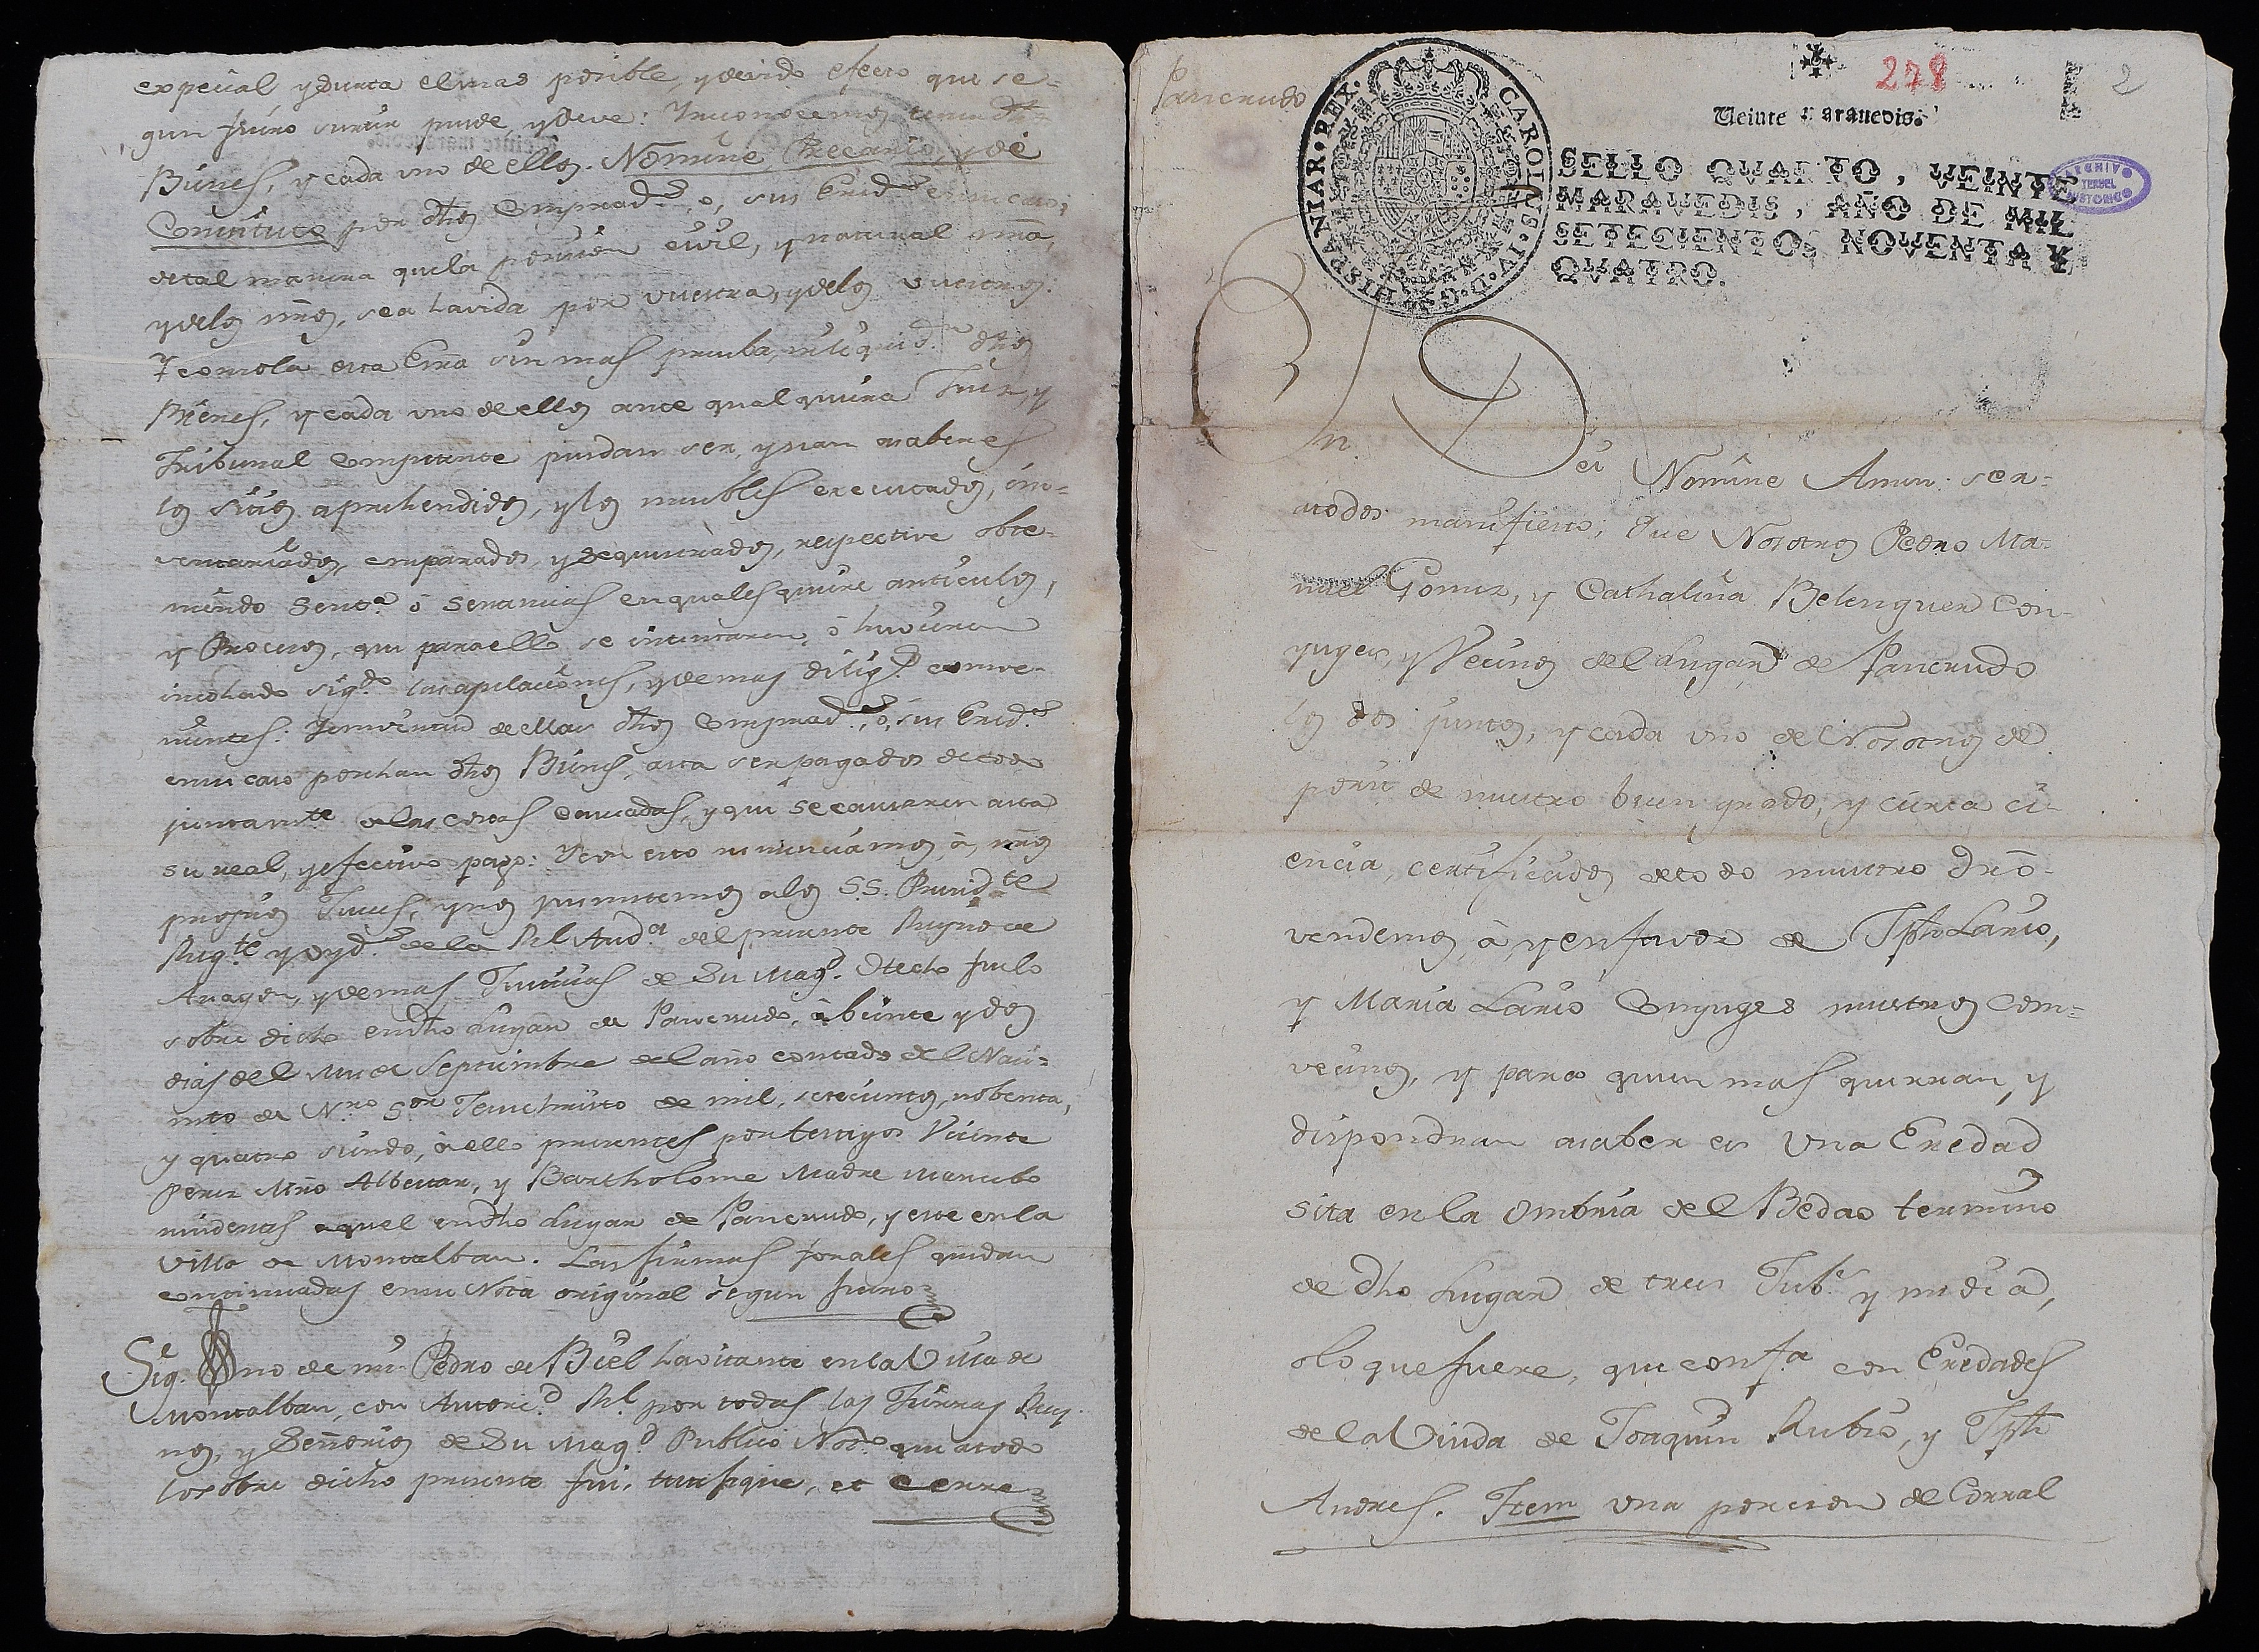 expecial y surta el mas posible, y devido efecto que se=
gun fuero surtir puede, y deve: Y reconocemos tener dhos
Bienes, y cada uno de ellos. Nomine Precario, y de
Constituto por dhos Comprad.es, o, sus Ered.os en su caso;
de tal manera que la posesion civil, y natural nra,
y de los nros, sea havida por vuestra, y de los vuestros.
Y con sola esta Esra sin mas prueba, ni liquid.n dhos
Bienes, y cada uno de ellos ante qualquiera Juez, y
Tribunal Competente puedan ser, y sean asaber es
los sitios aprehendidos, y los muebles executados, in=
ventariados, emparados, y sequestrados, respective obte=
niendo Sent.a ò Sentencias en qualesquiere articulos,
y Procesos, que para ello se intentaren, ò hicieren
incohado sig.do las apelaciones, y demas dilig.s conve-
nientes: Y en virtud de ellas dhos Comprad.es, ò, sus Ered.os
en su caso posehan dhos Bienes, asta ser pagados de todo
juntam.te a las costas causadas, y que se causaren asta
su real, y efectivo pago: Y con esto renunciamos, à, nros
propios Jueces, y nos jusmetemos a los SS. Presid.te
Reg.te y Oyd.s de la Rl Aud.a del presente Reyno de
Aragon, y demas Justicias de Su Mag.d Hecho fue lo
sobre dicho en dho Lugar de Pancrudo, à beinte y dos
dias del Mes de Septiembre del año contado del Naci=
mto de N.ro S.or Jesuchristo de mil, setecientos, nobenta,
y quatro siendo, à ello presentes por testigos Vicente
Perez Mro Albeitar, y Bartholome Madre Mancebo
residentes aquel en dho Lugar de Pancrudo, y este en la
Villa de Montalban. Las firmas forales quedan
continuadas en su Nota original segun fuero
Sig. no de mi Pedro de Biel havitante en la Villa de
Montalban, con Autori.d Rl por todas las Tierras Rey
nos, y Señorios de Su Mag.d Publico Not.o que a todo
lo sobre dicho presente fui, testifiqué, et cerré
Pancrudo
278
2
Veinte maravedis.
SELLO QVARTO, VEINTE
MARAVEDIS, AÑO DE MIL
SETECIENTOS NOVENTA Y
QVATRO.
CAROLUS . IV . D . G . HISPANIAR . REX .
TERUEL
In. Dei Nomine Amen: sea=
atodos manifiesto; Que Nosotros Pedro Ma=
nuel Gomez, y Cathalina Belenguer Con-
yuges, y Vecinos del Lugar de Pancrudo
los dos juntos, y cada uno de Nosotros de
por si de nuestro buen grado, y cierta ci-
encia, certificados de todo nuestro Drō-
vendemos, à, y en favor de Jph Lario,
y Maria Lario Conyuges nuestros Com-
vecinos, y para quien mas querran, y
dispondran asaber es Una Eredad
sita en la Ombria del Bedao termino
de dho Lugar de tres Jub.s y media,
o lo que fuere, que conf.a con Eredades
de la Viuda de Joaquin Rubio, y Jph
Andres. Item una porcion de Corral